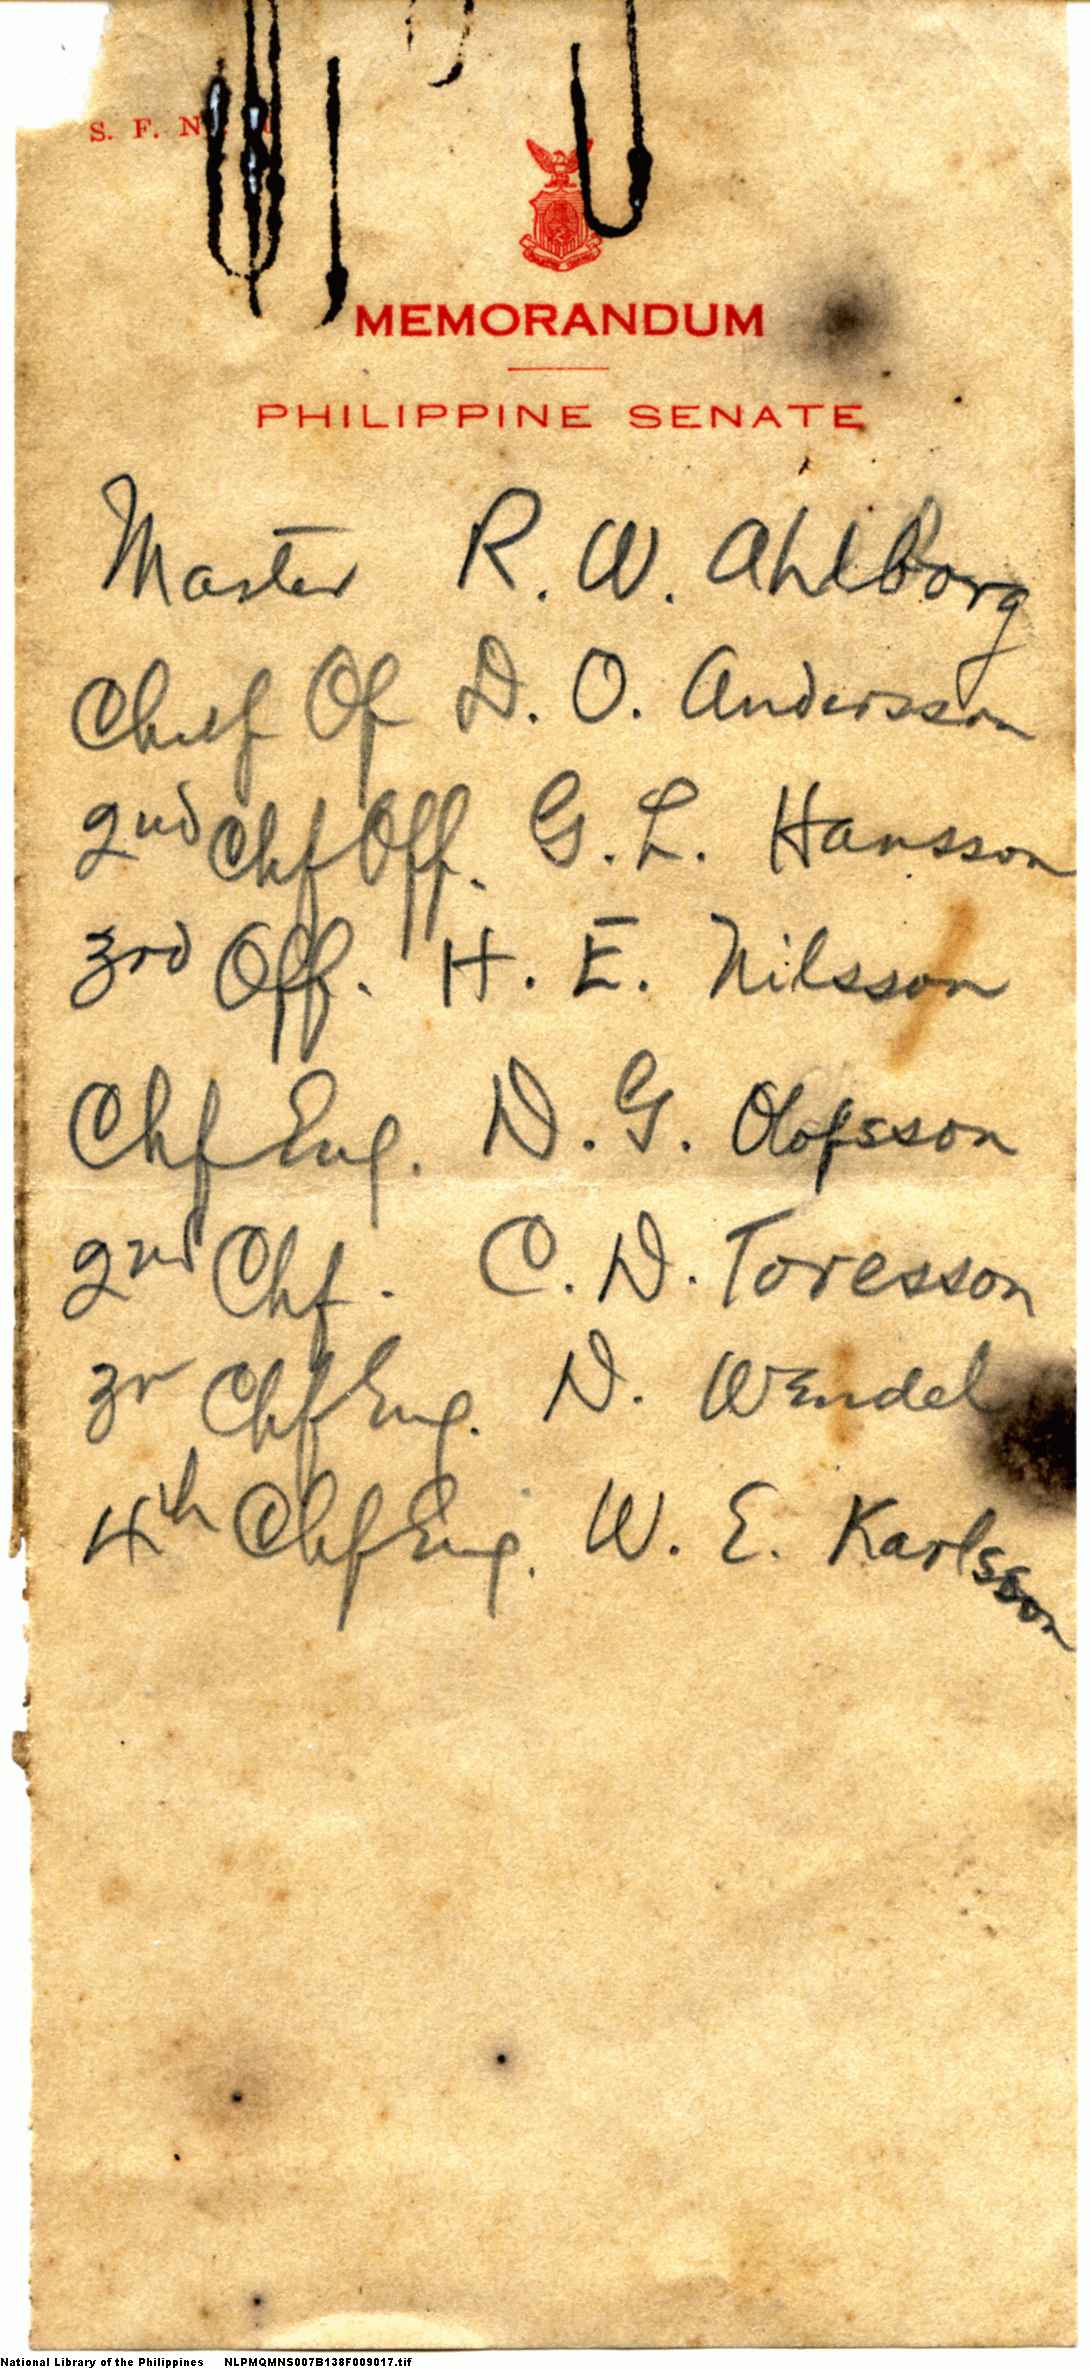 S. F. N
MEMORANDUM
PHILIPPINE SENATE
Master R. W. Ahlborg
Chief Of D. O. Andersson
2nd Chf Off. G. L. Hansson
3rd Off. H. E. Nilsson
Chf Eng. N. G. Olofsson
2nd Chf. C. N. Toresson
3r Chf Eng. N. Wendel
4th Chf Eng. W. E. Karlsson
National Library of the Philippines NLPMQMNS007B138F009017.tif